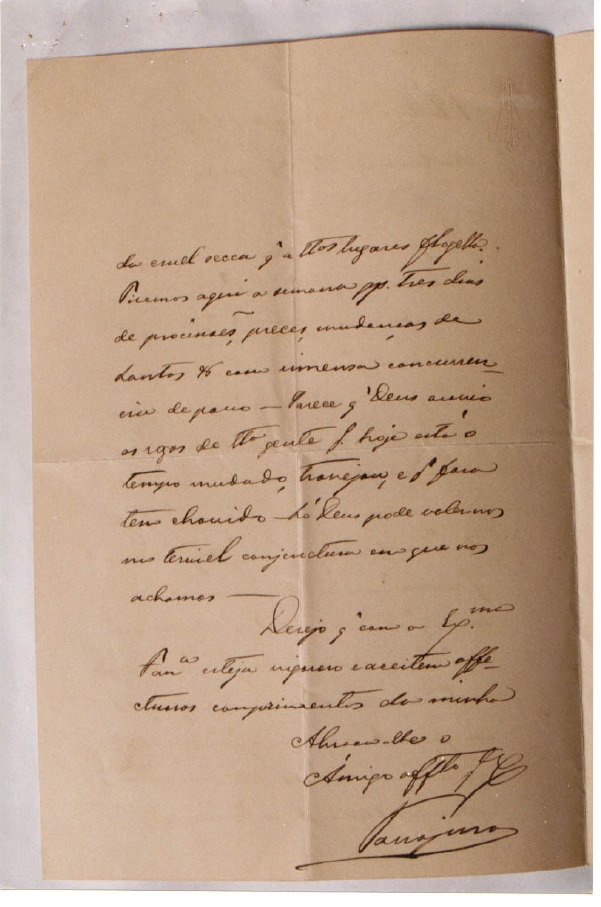 da cruel secca q' a ttos lugares flagella.
Fizemos aqui a semana pp. tres dias
de procissões, preces, mudanças de
Santos & com immensa concurren-
cia de povo — Parece q' Deus ouvio
os rogos de tta gente p. hoje está o
tempo mudado, trovejou, e p' fora
tem chovido — Só Deus pode valer-nos
na terrivel conjunctura em que nos
achamos —
Desejo q' com a Ex.ma
Fam.a esteja vigoroso e aceitem affe-
ctuosos comprimentos da minha
Abrace-lhe o
Amigo affto